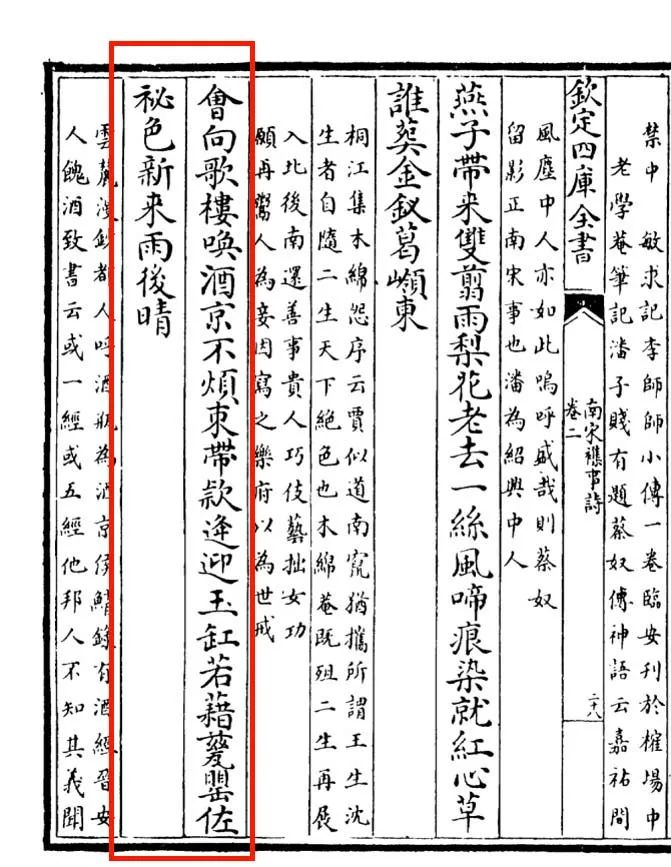 禁中 敏求記李師師小傳一卷臨安刊於榷場中
老學菴筆記潘子賤有題蔡奴傳神語云嘉祐間
欽定四庫全書
南宋襍事詩
卷二
二十八
風塵中人亦如此嗚呼盛哉則蔡奴
留影正南宋事也潘為紹興中人
燕子帶来雙翦雨梨花老去一絲風啼痕染就紅心草
誰葬金釵葛嶺東
桐江集木綿怨序云賈似道南竄猶攜所謂王生沈
生者自隨二生天下絕色也木綿菴既殂二生再展
入北後南還善事貴人巧伎藝拙女功
願再鬻人為妾因寫之樂府以為世戒
會向歌樓喚酒京不煩束帶欵逢迎玉缸若藉甆罌佐
祕色新来雨後晴
雲麓漫鈔都人呼酒瓶為酒京侯鯖錄有酒經晉安
人餽酒致書云或一經或五經他邦人不知其義聞